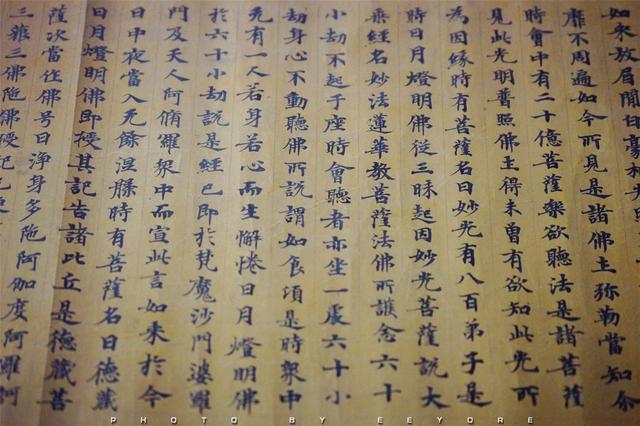 如来放眉間白毫相光
靡不周遍如今所見是諸佛土弥勒當知尒
時會中有二十億菩薩樂欲聽法是諸菩薩
見此光明普照佛土得未曾有欲知此光所
為因緣時有菩薩名曰妙光有八百弟子是
時日月燈明佛從三昧起因妙光菩薩說大
乘經名妙法蓮華教菩薩法佛所護念六十
小劫不起于座時會聽者亦坐一處六十小
劫身心不動聽佛所說謂如食頃是時衆中
无有一人若身若心而生懈惓日月燈明佛
於六十小劫說是經已即於梵魔沙門婆羅
門及天人阿脩羅衆中而宣此言如来於今
日中夜當入无餘涅槃時有菩薩名曰德藏
日月燈明佛即授其記告諸比丘是德藏菩
薩次當作佛号曰淨身多陁阿伽度阿羅訶
三藐三佛陁佛授記已便
PHOTO BY EEYORE